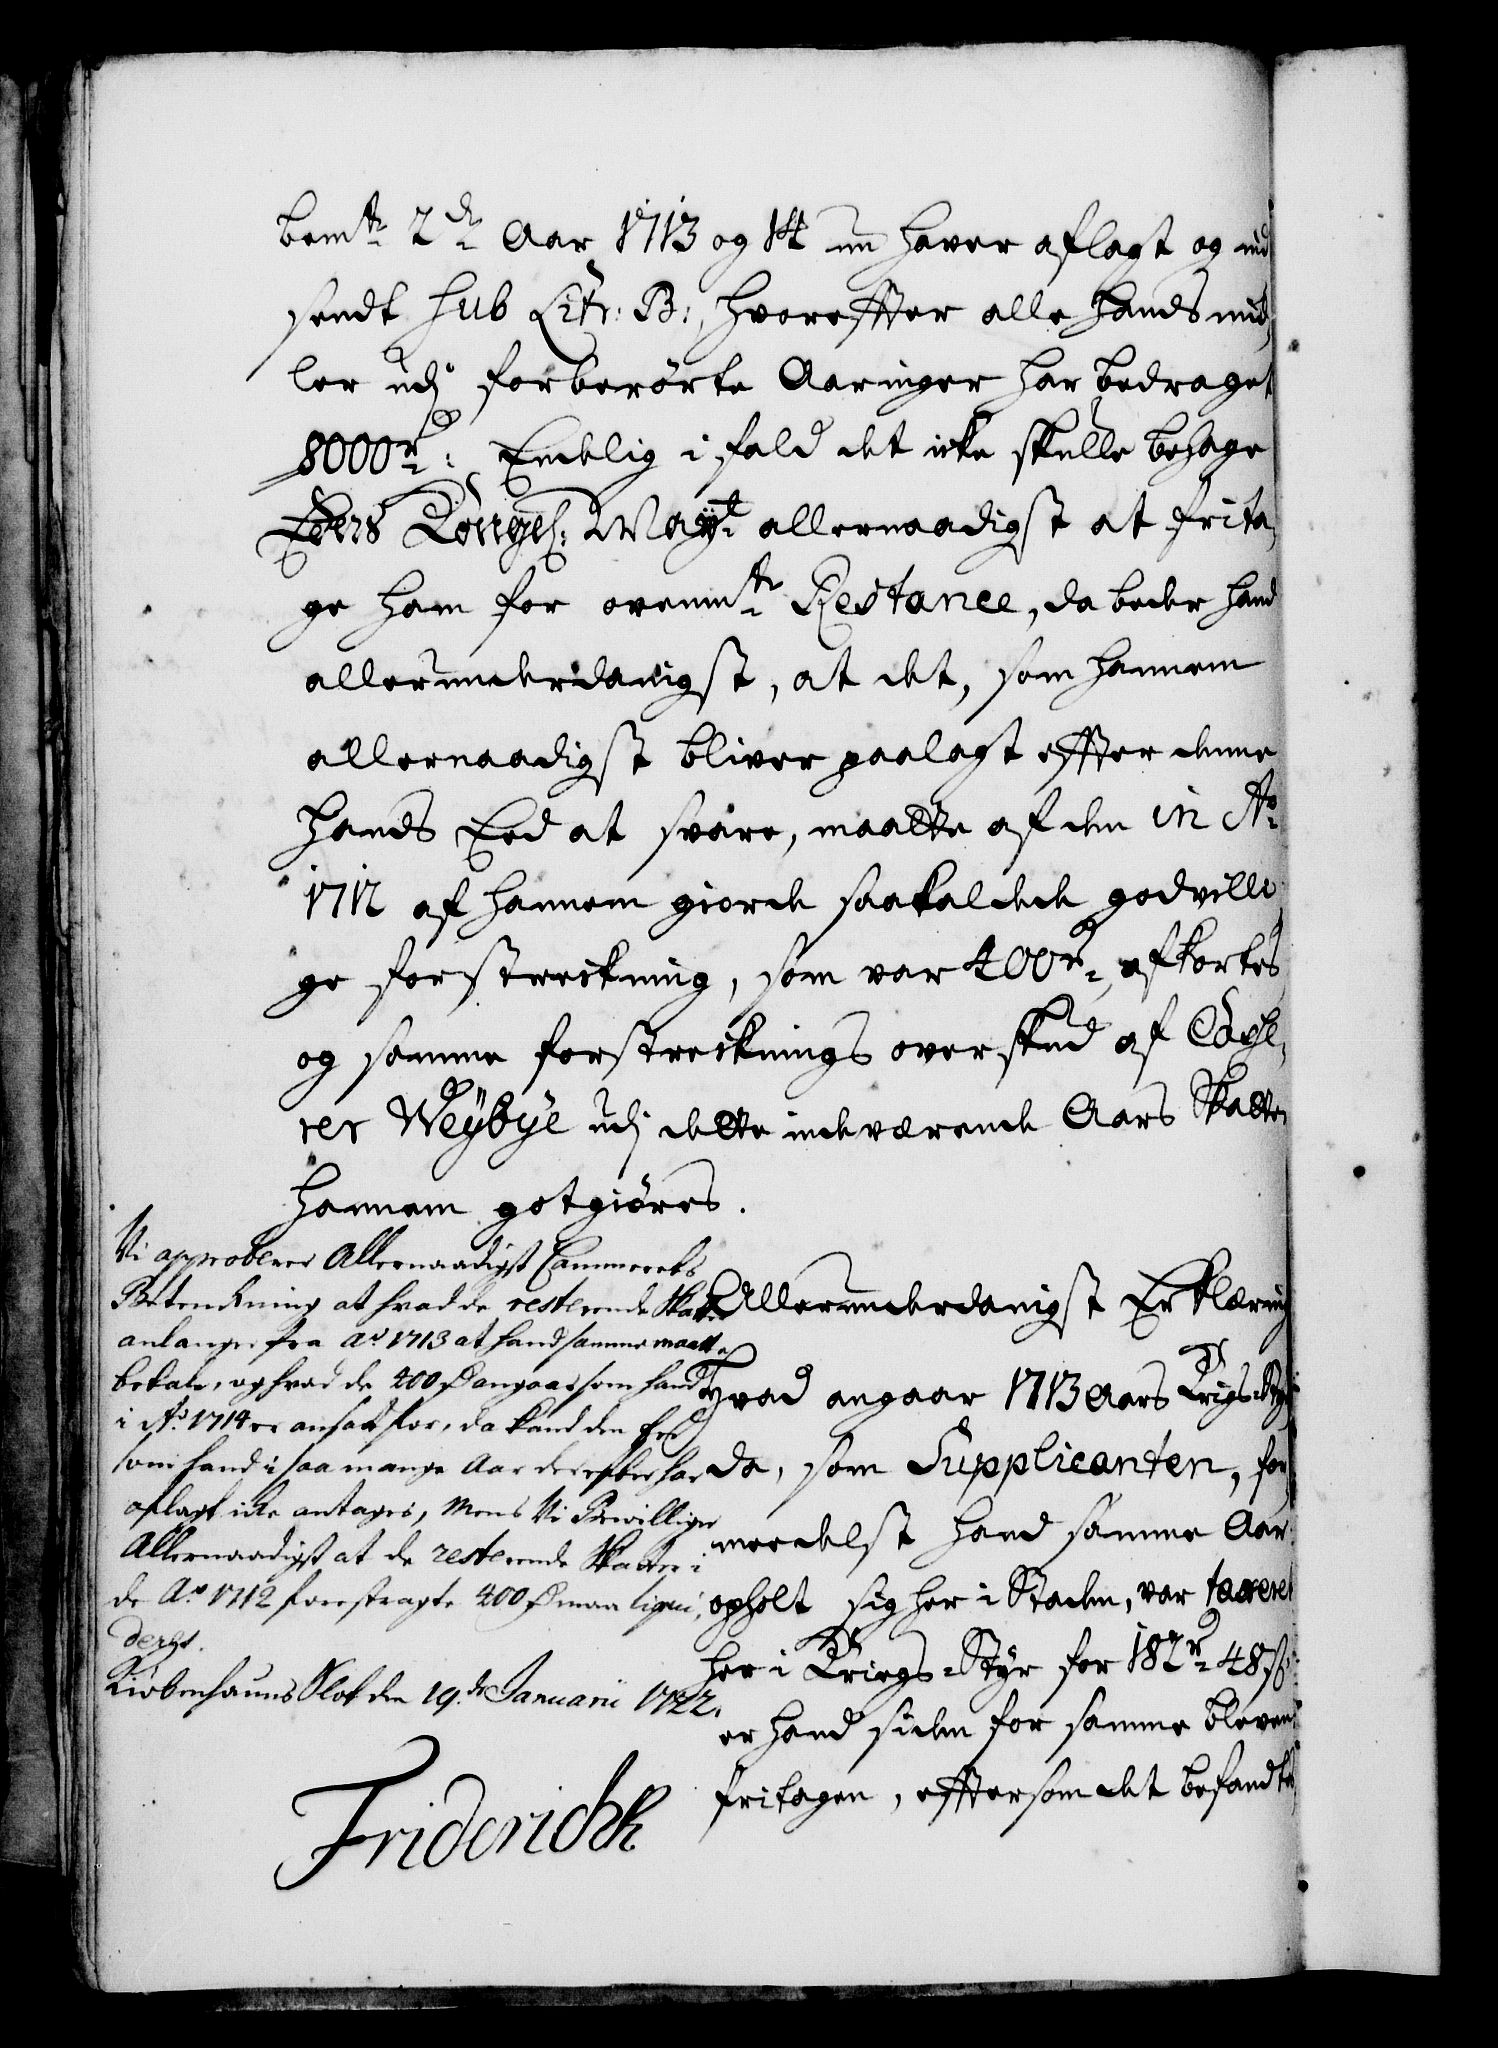 bemte 2de Aar 1713 og 14 nu haver aflagt og ind
sendt sub Litr: B:, hvorefter alle hands mid,
ler udj forberørte Aaringer har bedraget
8000 rd: Endelig i fald det icke skulle behage
Eders Kongel: Mayt allernaadigst at frita,
ge ham for ovenmte Restance, da beder hand
allerunderdanigst, at det, som hannem
allernaadigst bliver paalagt effter denne
hands Eed at svare, maatte af den in Ao
1712 af hannem giorde saakaldede godvilli
ge forstreckning, som var 400 rd, afkortes
og samme forstrecknings overskud af
Weybye udj dette indeværende Aars Skatter
hannem gotgiøres.
Vi approberer Allernaadigst Cammerets
Betenckning at hvad de resterende Skatter
anlanger fra Ao 1713 at hand samme maatte
betale, og hvad de 400 rd angaar som hand
i Ao 1714 er ansatt for, da kand den Eed
som hand i saa mange Aar derefter har
aflagt icke antages, Mens Vi Bewilliger
Allernaadigst at de resterende Skatter i
de Ao 1712 forestragte 400 rd maa liqvi,
deres.
Kiøbenhauns Slot den 19de Januarii 1722.
Friderich R
Allerunderdanigst Erklæring
Hvad angaar 1713 Aars Krigs Styr
da, som Supplicanten, for,
meedelst hand samme Aar
opholt sig her i Staden, var taxeret
her i Kriegs-Styr for 182 rd 48 ß
er hand siden for samme bleven
fritagen, effter som det befandtes